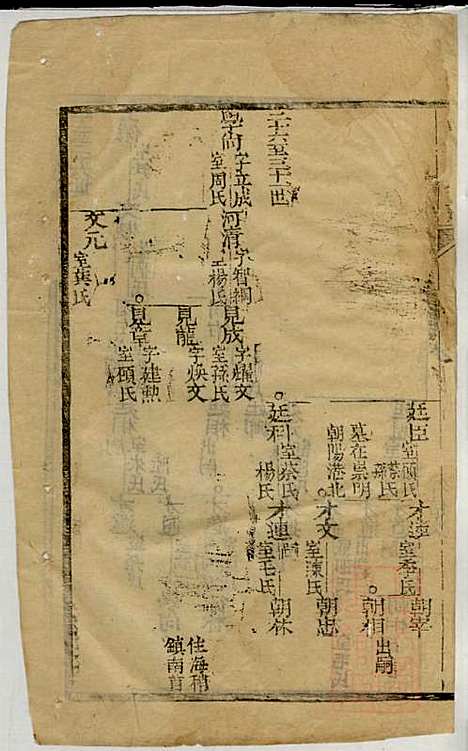 二十六至三十一世
學尚 字立成 室周氏
河清 字智綱 室楊氏
見成 字耀文 室孫氏
見龍 字煥文
見章 字建勲 室顧氏
文元 室龔氏
廷臣 室顧氏 蔡氏
墓在崇明
朝陽港北
才逵 室李氏
朝宰
朝相 出嗣
才文 室陳氏
朝忠
廷科 室蔡氏 楊氏
才連 室毛氏
朝休
住海稍
鎮南首